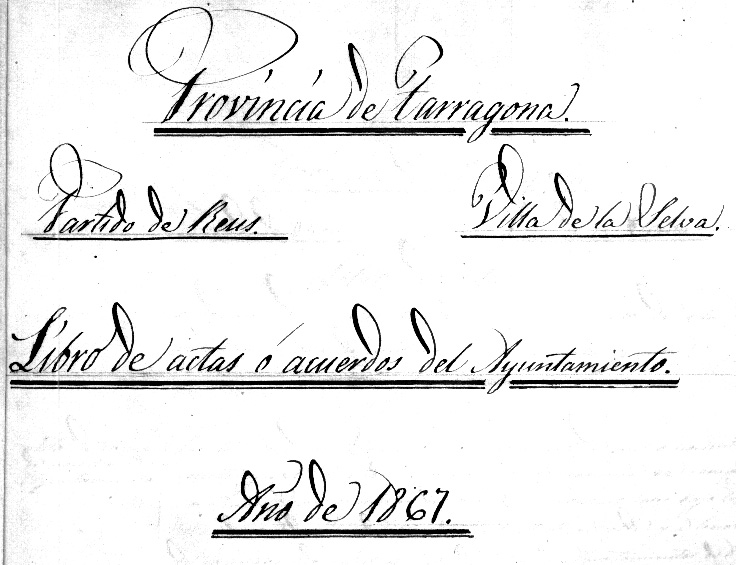 Provincia de Tarragona.
Partido de Reus. Villa de la Selva.
Libro de actas ó acuerdos del Ayuntamiento.
Año de 1867.